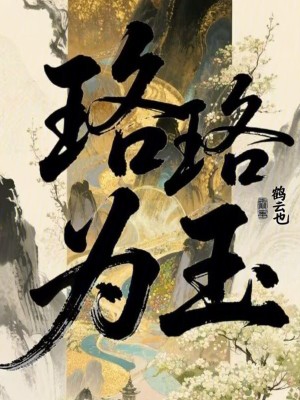 珞珞
为玉
鹤云也